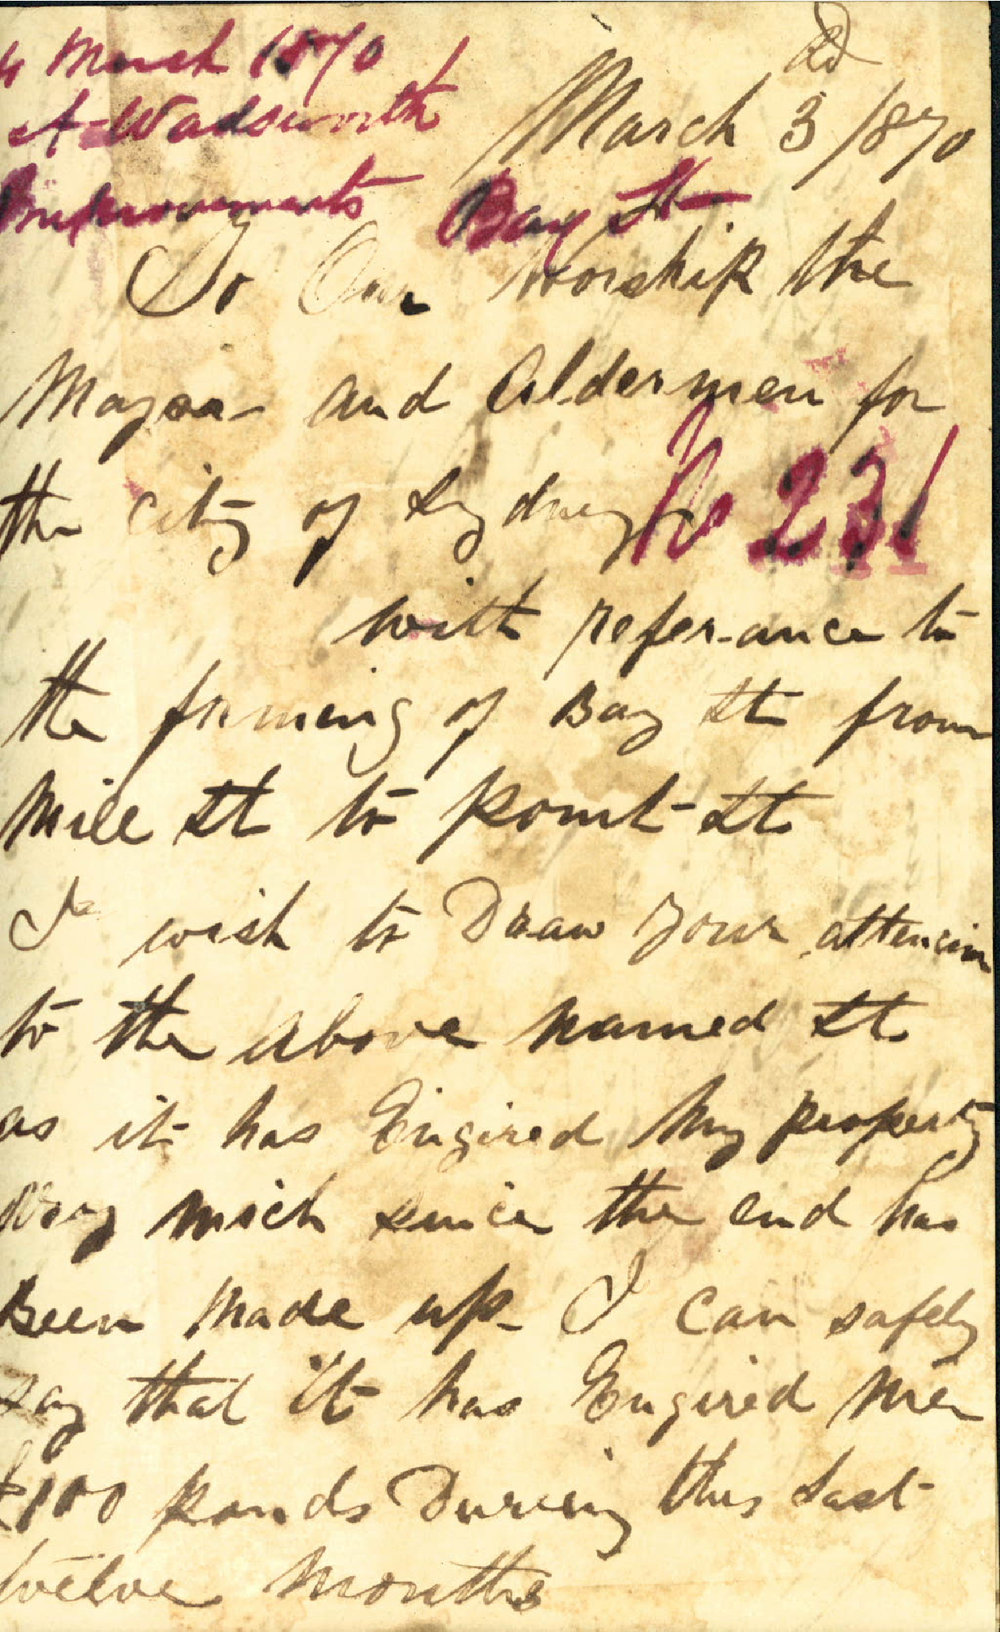 4 March 1870
A Wadsworth
Improvements Bay St
March 3rd /870
To Our Worship the
Mayor and Aldermen for
the city of Sydney
No 231
with referance to
the forming of Bay St from
Mill St to Point St
I wish to Draw Your attencion
to the above named St
as it has Engired my property
very mich since the end has
Been Made up I can safely
say that it has Engired me
£100 pounds During this Last
twelve Months